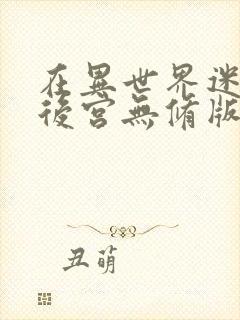 在異世界迷
後宮無修版
丑萌